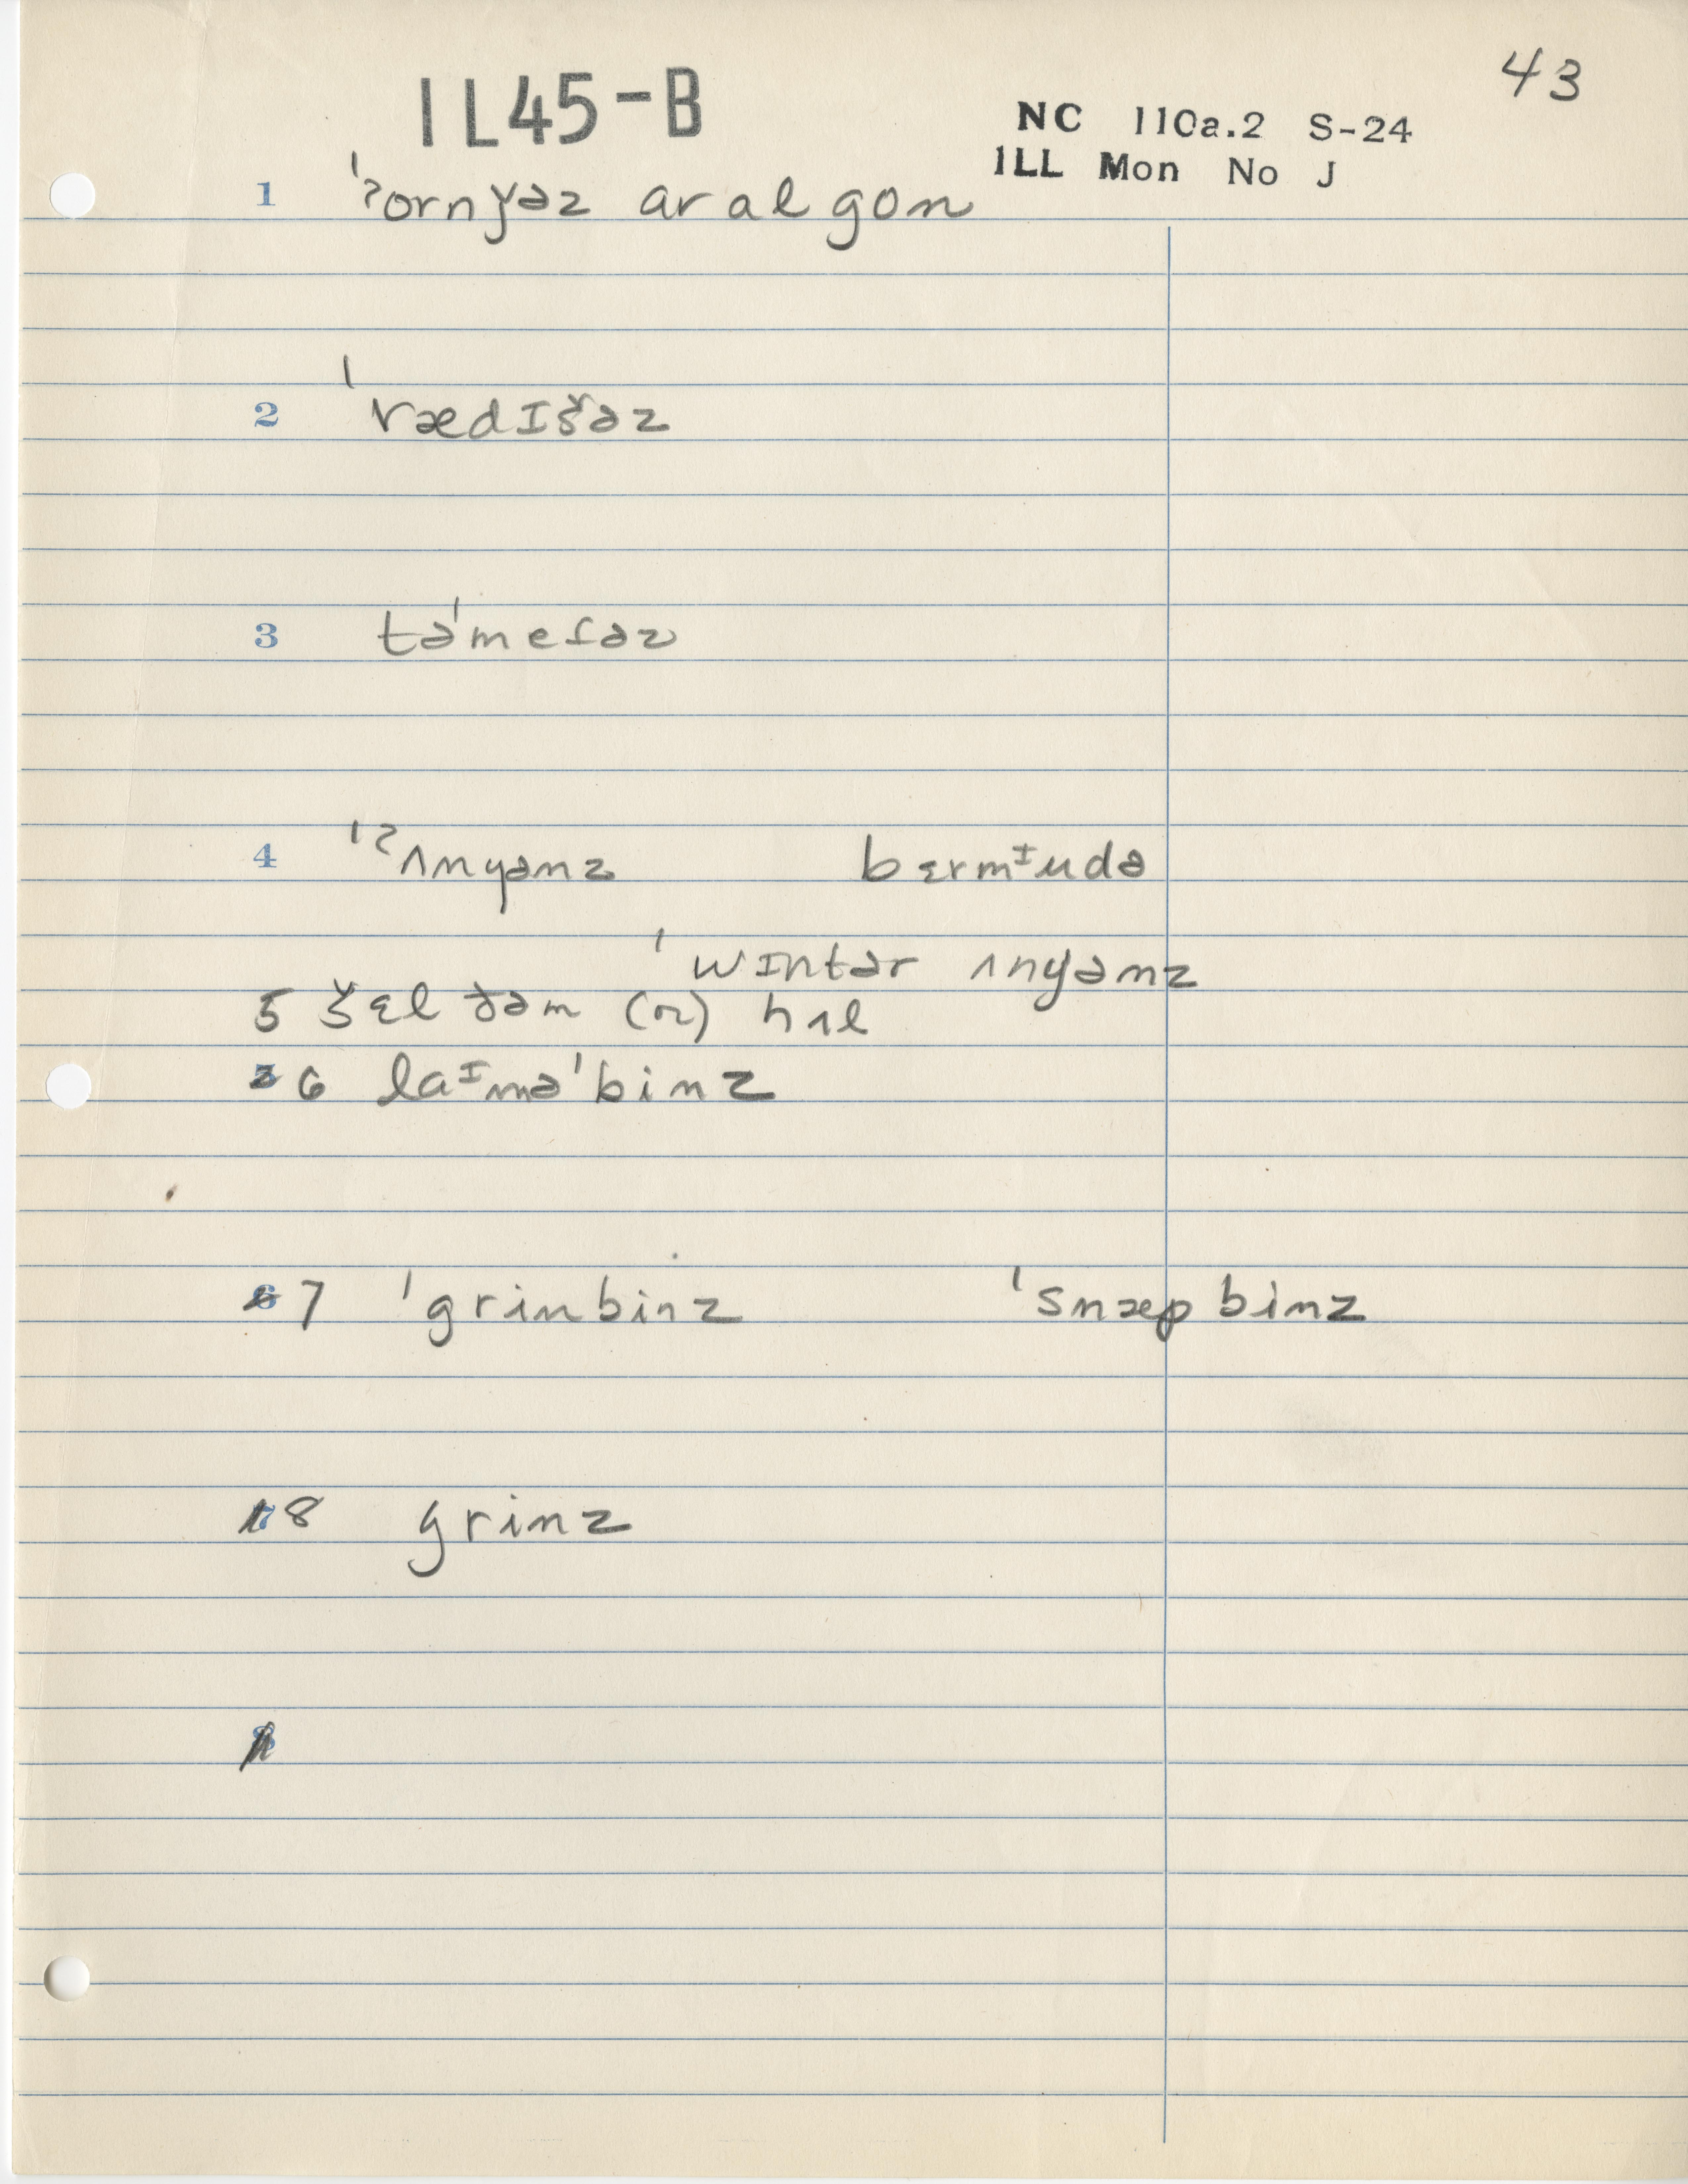 43
IL45-B
NC 110a.2 S-24
ILL Mon No J
1 ˈʔornǰəz ar al gon
2 ˈrædɪšəz
3 təˈm
4 ˈʔʌnyənz bɛrmᶦudə
ˈwɪntər ʌnyənz
5 šɛl ðəm (or) hʌl
6 laᶦməˈbinz
7 ˈgrinbinz ˈsnæpbinz
8 grinz